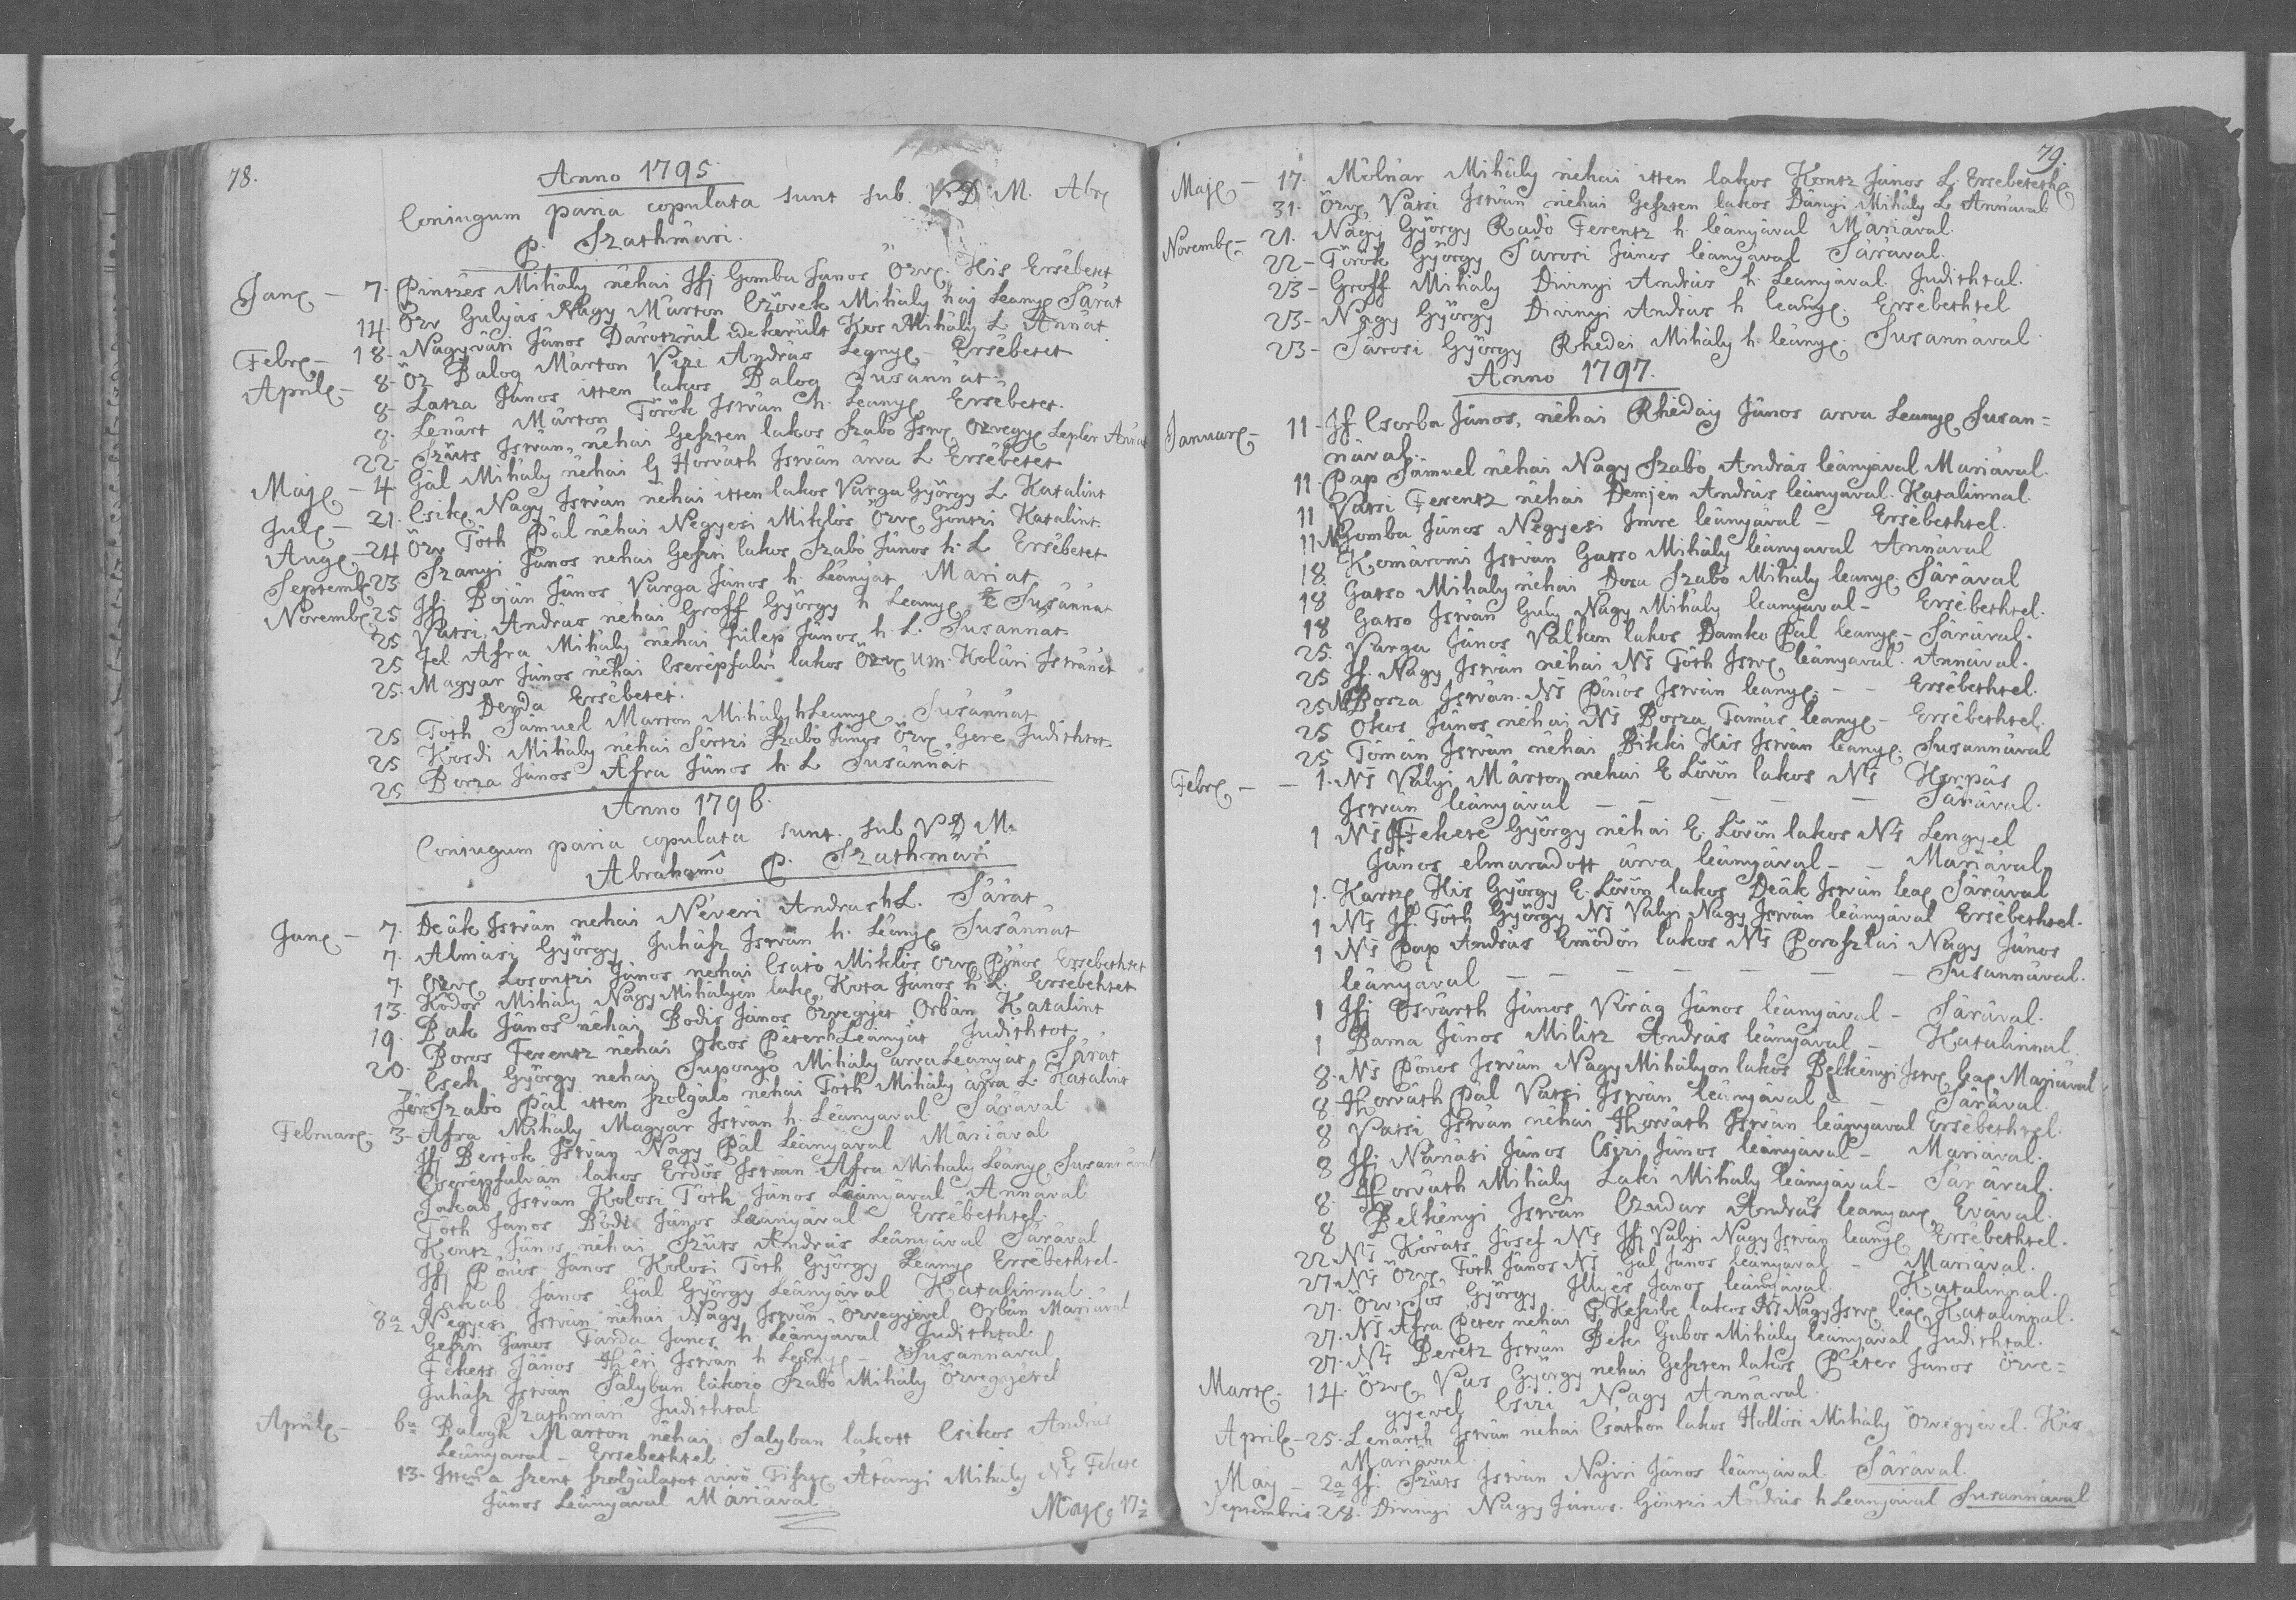 78.
Anno 1795
Coniugum paria copulata sunt sub V D. M. Abr
P. Szathmári.
Jan – 7. Pintzés Mihály néhai Ifj Gomba János Örv. Kis Ersébetet
14. Örv Gulyás Nagy Márton Czövek Mihály haj Leany Sárát
Febr – 18 – Nagyváti János Darótzrúl ide került Kos Mihály L Annát
April – 8 – Öz Balog Márton Vize András Legny – Ersébetet
8 – Latza János itten lakos Balog Susánnát
8. Lénárt Márton Török István h. Leany Ersébetet.
22 – Szüts István, néhai Geszten lakos Szabó Istv özvegye Lepler Annát
Maj – 4. Gál Mihály néhai G Horváth István árva L Ersébetet
Jul – 21. Csik Nagy István néhai itten lakos Varga György L Katalint
Aug – 24 Örv Tóth Pál néhai Négyesi Miklós Örv Göntzi Katalint
Septemb 23 Szanyi János néhai Geszti lakos Szabó János h. L Ersébetet
Novemb 25 Ifj Boján János Varga János h. Leányát Mariat
25 Vatsi András néhai Groff György h Leany Susánnát
25 Jel Afra Mihály néhai Fülep János h. L. Susannát
25. Magyar János néhai Cserépfalvi lakos Örv um. Kolári Istvánét
Deada Ersébetet.
25 Tóth Sámuel Marton Mihály h Leany Susánnát
25 Kosdi Mihály néhai Sertzi Szabó János Örv Gere Judithtot
25 Borza János Afra János h. L Susánnát
Anno 1796.
Coniugum paria copulata sunt. sub V D M.
Abrahamô P. Szathmári
Jan – 7. Deák István nehai Néveri András h L. Sárát
7. Almási György Juhász István h. Leány Susánnát
7. Özv Losontzi János néhai Csató Miklós Örv Pónos Ersébethtet
13. Kódor Mihály Nagy Mihályin lak Kota János h L. Ersébehtet
19. Bak János néhai Bodis János Özvegyét Orbán Katalint
20. Boros Ferentz néhai Okos Péter h Leányát Judithtot.
Cseh György nehai Suponyó Mihály arva Leanyát Sárát
Szabó Pál itten szolgáló néhai Tóth Mihály árva L. Katalint
Februar 3 – Afra Mihály Magyar István h. Léanyával Sárával
Ifj Bertók István Nagy Pál Leányával Máriával
Cserépfalván lakos Erdős István Afra Mihály Léany Susannával
Jakab István Kolosi Tóth János Leányával Annával
Tóth János Bódi János Leányával Ersébethtel
Kontz János néhai Szüts András Leányával Sárával
Ifj Pónos János Kolosi Tóth György Leany Ersébethtel.
Jakab János Gál György Leányával Katalinnal
8a Negyesi István néhai Nagy István Özvegyével Orbán Mariával
Geszti János Farda János h. Leányával Judithtal.
Fekets János Théri István h Leány – Susannaval
Juhász István Sályban lakozó Szabó Mihály Özvegyével
Szathmári Judithtal
April – 6a Balogh Marton néhai Salyban lakott Csikos András
Leányaval – Ersébethtel
13 – Itten a szent szolgálatot vivő Tiszt Átányi Mihály Ns Fekete
János Leányával Máriával
Maj 17
79.
Maj – 17. Molnár Mihály néhai itten lakos Kontz János L. Ersébeteth
31. Örv Vatsi István néhai Geszten lakos Dányi Mihály L Annával
Novemb – 21. Nagy György Radó Ferentz h. leányával Máriával.
22 – Török György Sárosi János leányával Sárával.
23 – Groff Mihály Divinyi András h. Leányával Judithtal.
23 – Nagy György Divinyi András h leány. Ersébethtel
23 – Sárosi György Rhédei Mihály h. leány. Susannával
Anno 1797.
Januar – 11 – If Csorba János, néhai Rhédaij János arva Leany Susan=
nával.
11 Pap Sámuel néhai Nagy Szabó András leányával Máriával.
11 Vatsi Ferentz néhai Demjén András leányával. Katalinnal.
11 N Gomba János Négyesi Imre leányával – Ersébethtel.
18. Komáromi István Gatso Mihály leányával Annával
18 Gatso Mihály néhai Dosa Szabó Mihály leany. Sárával
18 Gatso István Guly Nagy Mihály leanyával – Ersébethtel.
25. Varga János Valkon lakos Damko Pál leany – Sárával.
25 If. Nagy István néhai Ns Tóth Istv leányával. Annával.
25 Ns Borza István. Ns Pónos István leany. – – Ersébethtel.
25 Okos János néhai Ns Borza Tamás leany – Ersébethtel.
25 Tóman István néhai Bikki Kis István leany. Susannával
Febr – – 1. Ns Vályi Márton nehai E Lövön lakos Ns Korpás
István leányával – – – – – Sárával.
1 Ns Fekete György néhai E. Lövön lakos Ns Lengyel
János elmaradott árva leányával – – Mariával
1. Kartz Kis György E. Lövön lakos Deák István lea Sárával
1 Ns If. Tóth György Ns Valyi Nagy István leányával Ersébethtel.
1 Ns Pap András Emödön lakos Ns Poroszlai Nagy János
leányával – – – – – – – Susannával.
1 Ifj Osváth János Virág János leányával – Sárával.
1 Barna János Militz András leányával – Katalinnal.
8. Ns Pónos István Nagy Mihályon lakos Belkényi Istv lea Mariával
8. Horváth Pál Vatsi István leányával – – Sárával.
8 Vatsi István néhai Horváth István leányával Ersébethtel.
8 Ifj Nánási János Csizi János leányával – Mariával.
8. Horváth Mihály Laki Mihály leányával – Sárával.
8 Belkényi István Czudar András leanyav Évával.
22 Ns Kováts Jósef Ns Ifj Valyi Nagy István leany Ersébethtel.
27 Ns Örv Tóth János Ns Gál János leányával – Máriával.
27. Örv. Sós György Illyés János leányával Katalinnal.
27. Ns Afra Péter nehai G Keszibe lakos Ns Nagy Istv lea Katalinnal.
27. Ns Beretz István Beke Gabor Mihály leányával Judithtal.
Mart. 14. Örv Vas György néhai Geszten lakos Péter János Örve=
gyevel Csizi Nagy Annával.
April – 25. Lénárth István néhai Csáthon lakos Hollósi Mihály Özvegyével. Kis
Máriával.
May – 2a Ifj Szüts István Nyiri János leányával. Sárával.
Septembris. 28. Divinyi Nagy János. Göntzi András h Leanyával Susannával